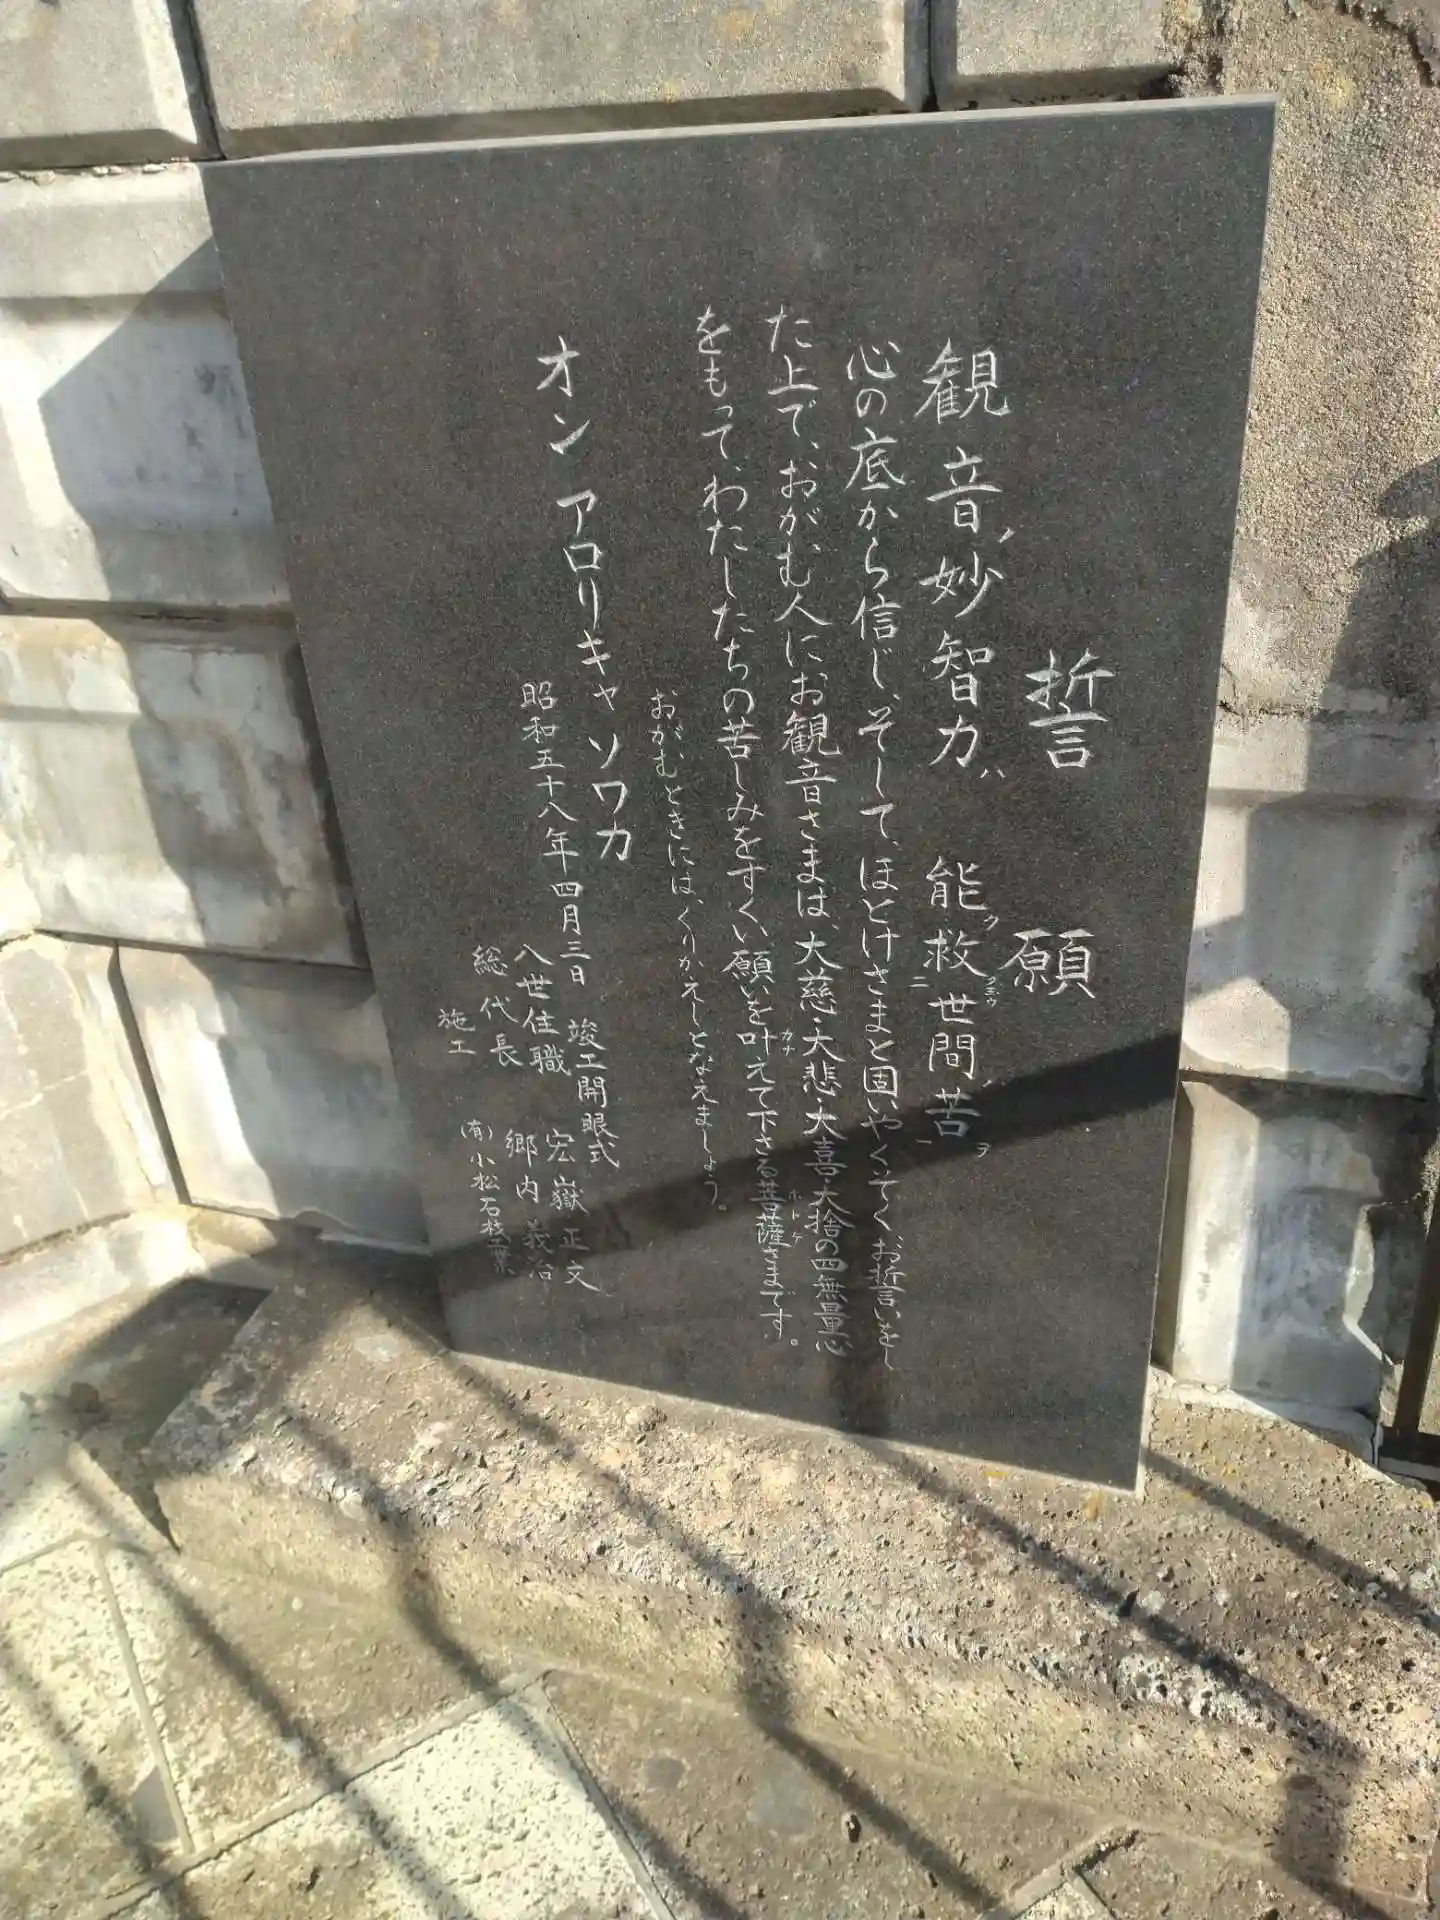 誓願
観音ノ妙智力ハ 能ク救二世間苦一ヲ
心の底から信じ、そして、ほとけさまと固いやくそく、お誓いをし
た上で、おがむ人にお観音さまは、大慈・大悲・大喜・大捨の四無量心
をもって、わたしたちの苦しみをすくい、願いを叶えて下さる菩薩さまです。
おがむときには、くりかえしとなえましょう。
オン アロリキャ ソワカ
昭和五十八年四月三日 竣工開眼式
八世住職 宏嶽正文
総代長 郷内義治
施工 (有)小松石材工業